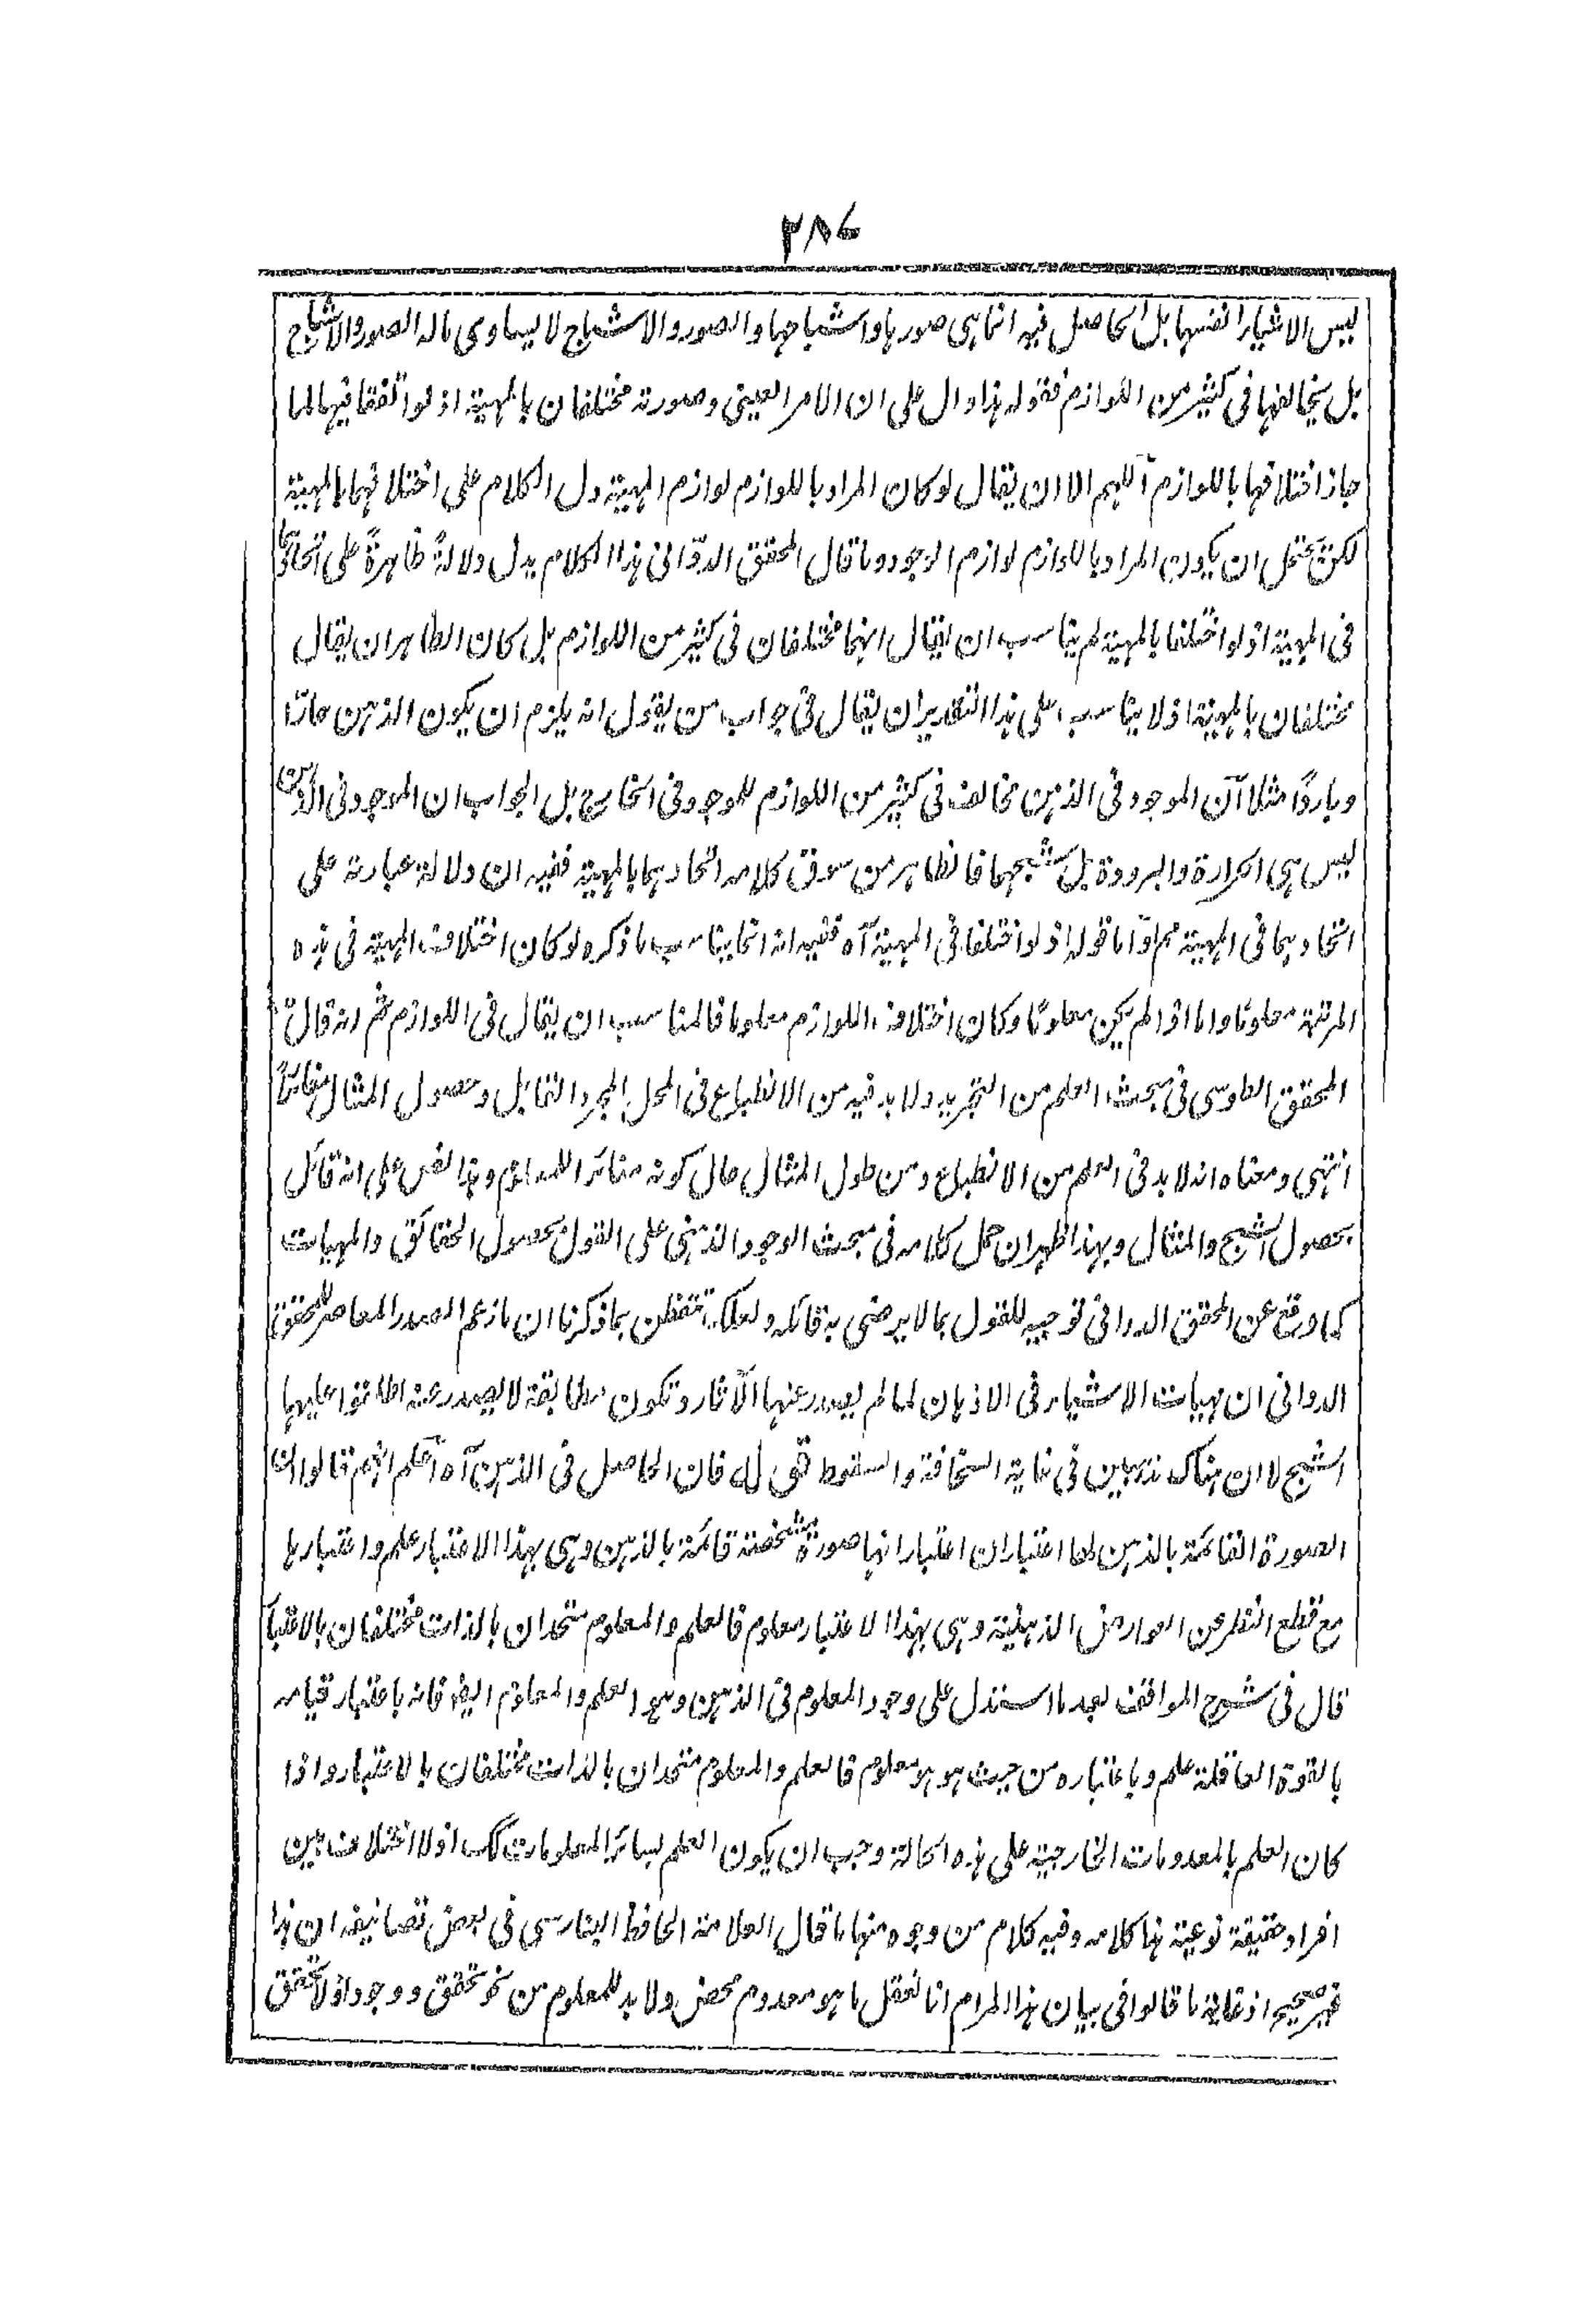 ٢٨٦
ليس الاشياء انفسها بل الحاصل فيه انما هي صورها واشباحها والصور والاشباح لا يساوي ماله الصور والاشباح
بل يخالفها في كثير من اللوازم فقوله هذا دال على ان الامر العيني وصورته مختلفان بالمهية اذ لو اتفقا فيها لما
جاز اختلافها باللوازم اللهم الا ان يقال لو كان المراد باللوازم لوازم المهية دل الكلام على اختلافهما بالمهية
لكن يحتمل ان يكون المراد باللوازم لوازم الوجود وما قال المحقق الدوّاني هذا الكلام يدل دلالةً ظاهرةً على اتحادهما
في المهية اذ لو اختلفا بالمهية لم يناسب ان يقال انهما مختلفان في كثير من اللوازم بل كان الظاهر ان يقال
مختلفان بالمهية اذ لا يناسب على هذا التقدير ان يقال في جواب من يقول انه يلزم ان يكون الذهن حارًا
وباردًا مثلا ان الموجود في الذهن مخالف في كثير من اللوازم للموجود في الخارج بل الجواب ان الموجود في الذهن
ليس هي الحرارة والبرودة بل شبحهما فالظاهر من سوق كلامه اتحادهما بالمهية ففيه ان دلالة عبارته على
اتحادهما في المهية مم واما قوله اذ لو اختلفا في المهية آه ففيه انه انما يناسب ما ذكره لو كان اختلاف المهية في هذه
المرتبة معلومًا واما اذا لم يكن معلومًا وكان اختلاف اللوازم معلوما فالمناسب ان يقال في اللوازم ثم انه قال
المحقق الطوسي في مبحث العلم من التجريد ولا بد فيه من الانطباع في المحل المجرد القابل وحصول المثال مغائرًا
انتهى ومعناه انه لا بد في العلم من الانطباع ومن حلول المثال حال كونه مغائرا للمعلوم وهذا نص على انه قائل
بحصول الشبح والمثال وبهذا ظهر ان حمل كلامه في مبحث الوجود الذهني على القول بحصول الحقائق والمهيات
كما وقع عن المحقق الدواني توجيه للقول بما لا يرضى به قائله ولعلك تتفطن بما ذكرنا ان ما زعم الصدر المعاصر للمحقق
الدواني ان مهيات الاشياء في الاذهان لما لم يصدر عنها الآثار وتكون مطابقة لا يصدر عنه اطلقوا عليها
الشبح لا ان هناك مذهبين في غاية السخافة والسقوط قوله فان الحاصل في الذهن آه اعلم انهم قالوا ان
الصورة القائمة بالذهن لها اعتباران اعتبار انها صورة مشخصة قائمة بالذهن وهي بهذا الاعتبار علم واعتبارها
مع قطع النظر عن العوارض الذهنية وهي بهذا الاعتبار معلوم فالعلم والمعلوم متحدان بالذات مختلفان بالاعتبار
قال في شرح المواقف بعد ما استدل على وجود المعلوم في الذهن وهو العلم والمعلوم ايضا فانه باعتبار قيامه
بالقوة العاقلة علم وباعتباره من حيث هو هو معلوم فالعلم والمعلوم متحدان بالذات مختلفان بالاعتبار واذا
كان العلم بالمعدومات الخارجية على هذه الحالة وجب ان يكون العلم بسائر المعلومات كك اذ لا اختلاف بين
افراد حقيقة نوعية هذا كلامه وفيه كلام من وجوه منها ما قال العلامة الحافظ البنارسي في بعض تصانيفه ان هذا
غير صحيح اذ غاية ما قالوا في بيان هذا المرام انا نعقل ما هو معدوم محض ولا بد للمعلوم من نحو تحقق ووجود اذ لا تحقق